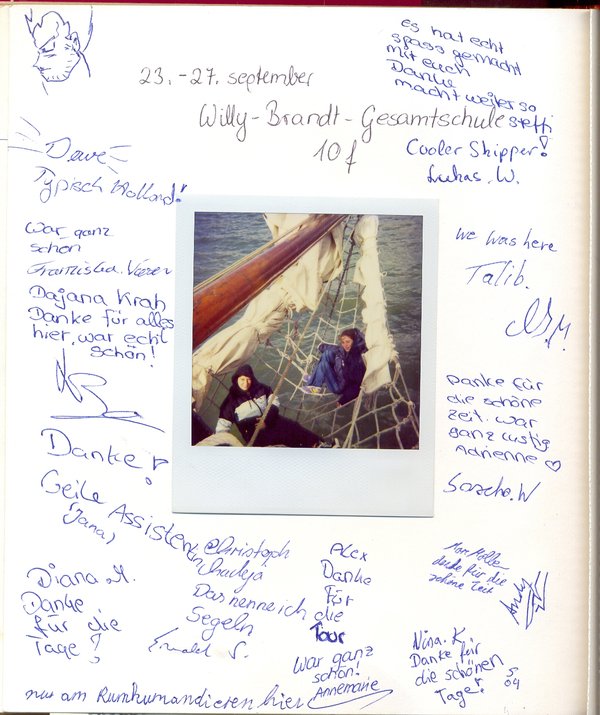 23.-27. september
Willy-Brandt-Gesamtschule
10f
es hat echt
spass gemacht
mit euch
Danke
macht weiter so
steffi
Cooler Skipper!
Lukas. W.
Typisch Holland!
war ganz
schön
Franziska
Dajana Krah
Danke für alles
hier, war echt
schön!
we was here
Talib.
Danke für
die schöne
zeit. war
ganz lustig
Adrienne ♡
Sascha. W
Danke!
Geile Assistentin
(Jana)
Christoph
Das nenne ich
Segeln
Alex
Danke
Für
die
Tour
war ganz
schön!
Annemarie
danke für die
schöne Zeit
Andy
Diana M.
Danke
für die
Tage!
Nina. K
Danke für
die schönen
Tage!
nur am Rumkumandieren hier